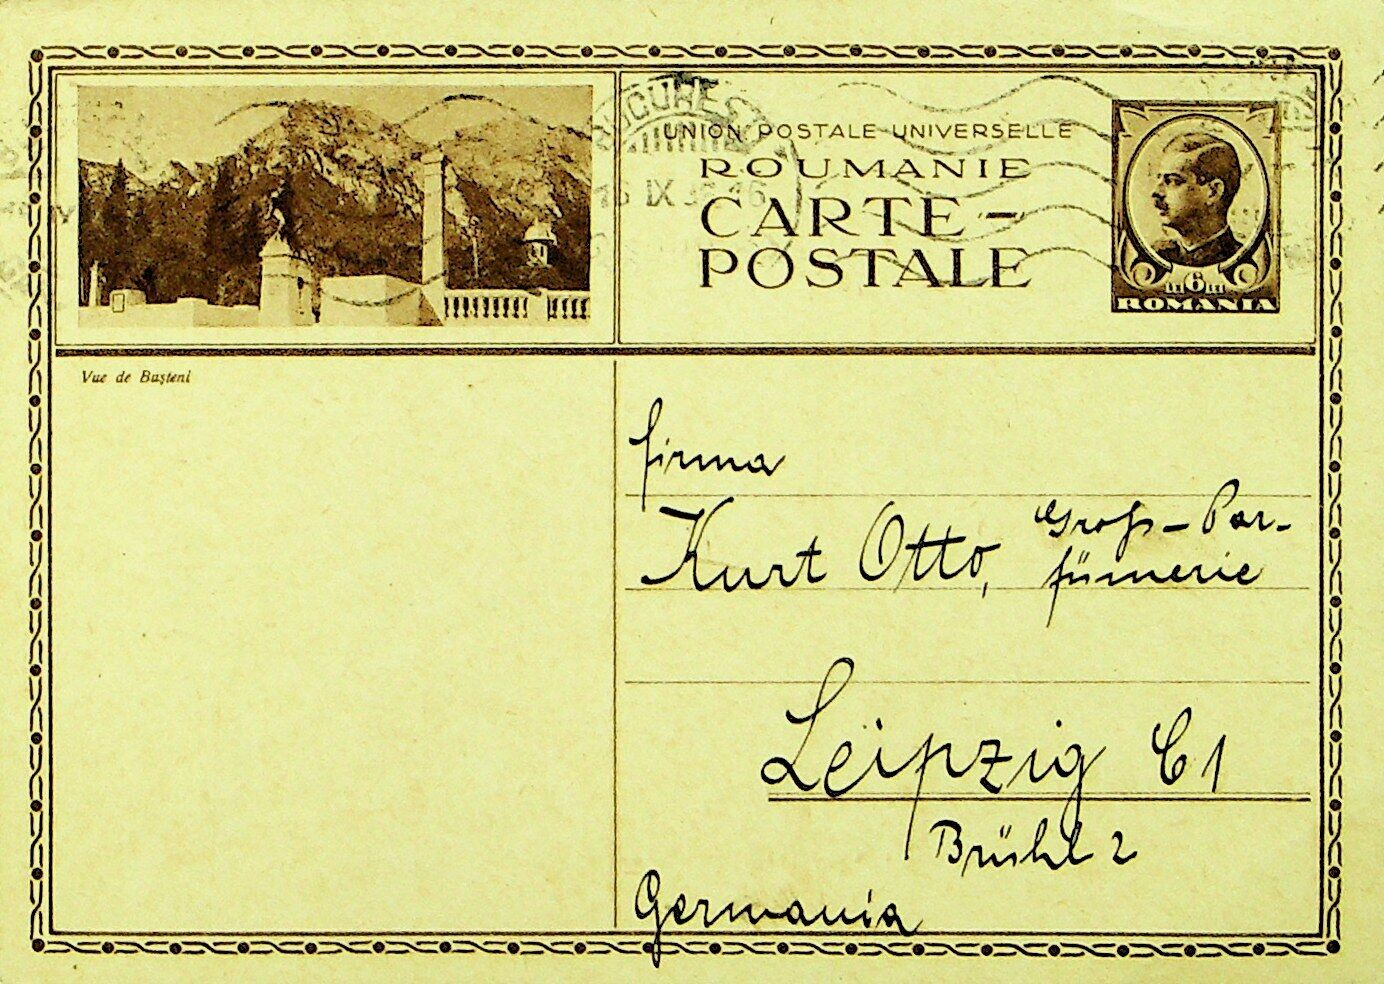 UNION POSTALE UNIVERSELLE
ROUMANIE
CARTE-
POSTALE
LEI 6 LEI
ROMANIA
Vue de Bușteni
Firma
Kurt Otto, Groß-Par-
fümerie
Leipzig C1
Brühl 2
Germania